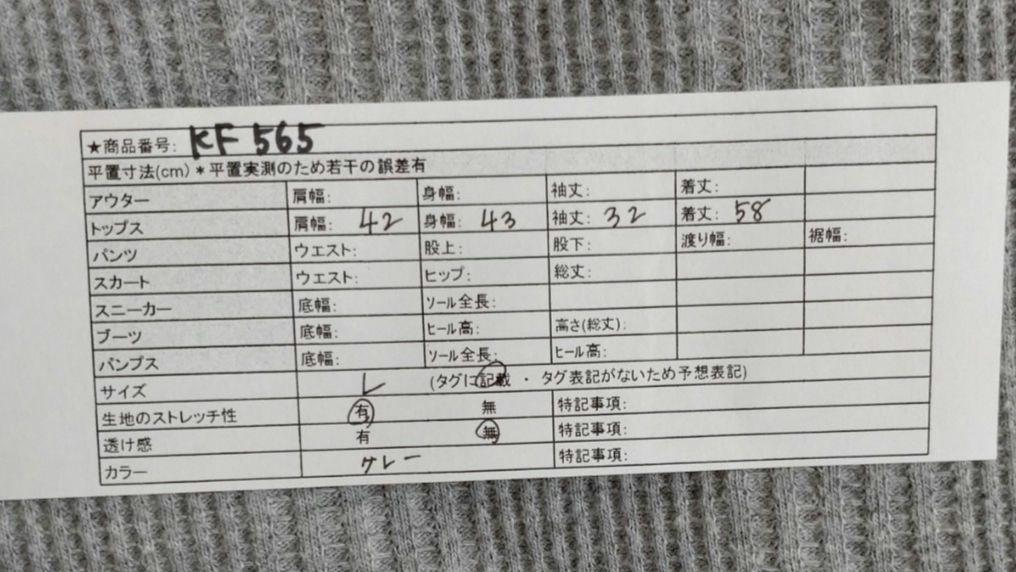 ★商品番号: KF 565
平置寸法(cm)*平置実測のため若干の誤差有
アウター 肩幅: 身幅: 袖丈: 着丈:
トップス 肩幅: 42 身幅: 43 袖丈: 32 着丈: 58
パンツ ウエスト: 股上: 股下: 渡り幅: 裾幅:
スカート ウエスト: ヒップ: 総丈:
スニーカー 底幅: ソール全長:
ブーツ 底幅: ヒール高: 高さ(総丈):
パンプス 底幅: ソール全長: ヒール高:
サイズ L (タグに記載 ・ タグ表記がないため予想表記)
生地のストレッチ性 有 無 特記事項:
透け感 有 無 特記事項:
カラー グレー 特記事項: